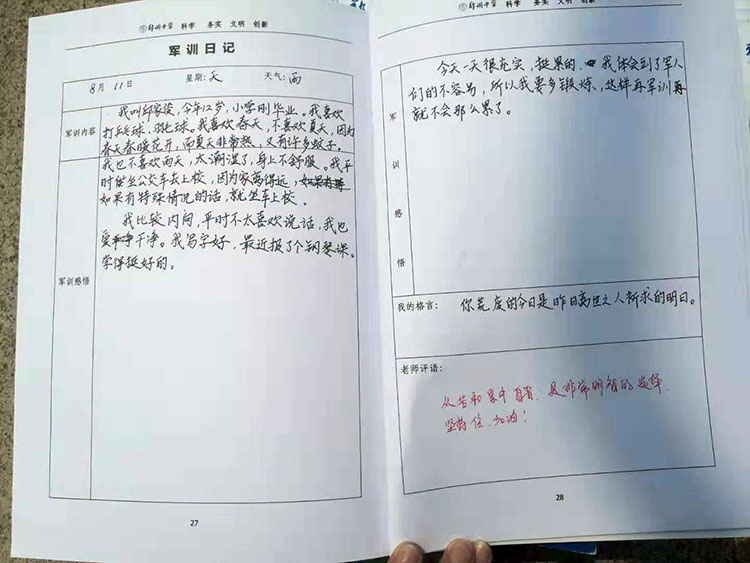 郑州中学 科学 务实 文明 创新
军训日记
8月11日 星期:天 天气:雨
军训内容
我叫邱家俊,今年12岁,小学刚毕业。我喜欢
打乒乓球,羽毛球。我喜欢春天,不喜欢夏天,因为
春天春暖花开,而夏天非常热,又有许多蚊子。
军训感悟
我也不喜欢雨天,太潮湿了,身上不舒服。我平
时能坐公交车去上校,因为家离得近,如果有特殊
如果有特殊情况的话,就坐车上校。
我比较内向,平时不太喜欢说话,我也
爱干净。我写字好,最近报了个钢琴课。
学得挺好的。
27
郑州中学 科学 务实 文明 创新
军训感悟
今天一天很充实,挺累的。我体会到了军人
们的不容易,所以我要多锻炼,这样再军训再
就不会那么累了。
我的格言: 你荒废的今日是昨日离世之人祈求的明日。
老师评语:
从苦和累中自省,是非常明智的选择
坚持住,加油!
28